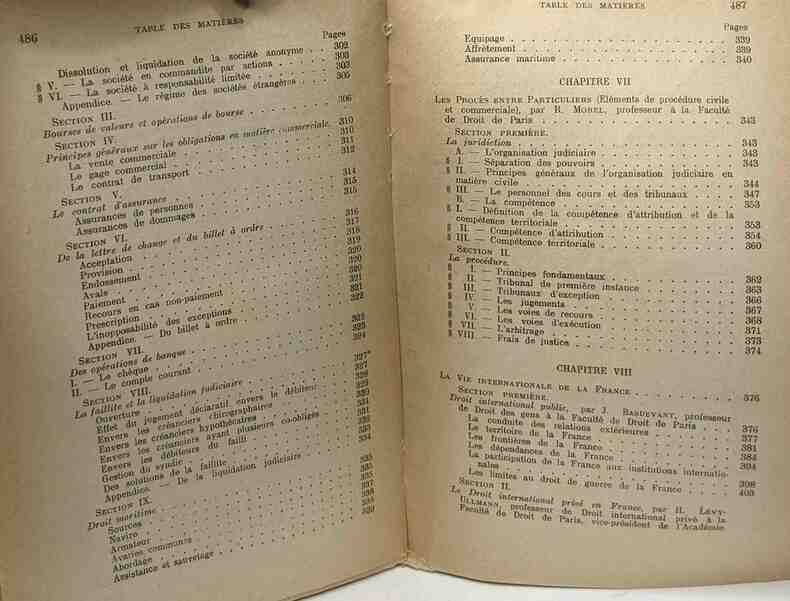 486 TABLE DES MATIÈRES
Pages
Dissolution et liquidation de la société anonyme . . 302
§ V. — La société en commandite par actions . . . . . 303
§ VI. — La société à responsabilité limitée . . . . . 303
Appendice. — Le régime des sociétés étrangères . . . 305
SECTION III.
Bourses de valeurs et opérations de bourse . . . . . 306
SECTION IV.
Principes généraux sur les obligations en matière commerciale. 310
La vente commerciale . . . . . 310
Le gage commercial . . . . . 311
Le contrat de transport . . . . . 312
SECTION V.
Le contrat d'assurance . . . . . 314
Assurances de personnes . . . . . 315
Assurances de dommages . . . . . 315
SECTION VI.
De la lettre de change et du billet à ordre . . . . . 316
Acceptation . . . . . 317
Provision . . . . . 318
Endossement . . . . . 319
Avals . . . . . 320
Paiement . . . . . 320
Recours en cas non-paiement . . . . . 321
Prescription . . . . . 321
L'inopposabilité des exceptions . . . . . 322
Appendice. — Du billet à ordre . . . . .
SECTION VII.
Des opérations de banque . . . . .
I. — Le chèque . . . . .
II. — Le compte courant . . . . .
SECTION VIII.
La faillite et la liquidation judiciaire . . . . .
Ouverture . . . . .
Effet du jugement déclaratif envers le débiteur
Envers les créanciers chirographaires . . . . .
Envers les créanciers hypothécaires . . . . .
Envers les créanciers ayant plusieurs co-obligés
Envers les débiteurs du failli . . . . .
Gestion du syndic . . . . .
Des solutions de la faillite . . . . .
Appendice. — De la liquidation judiciaire . . . . .
SECTION IX.
Droit maritime . . . . .
Sources . . . . .
Navire . . . . .
Armateur . . . . .
Avaries communes . . . . .
Abordage . . . . .
Assistance et sauvetage . . . . .
TABLE DES MATIÈRES 487
Pages
Equipage . . . . . 339
Affrètement . . . . . 339
Assurance maritime . . . . . 340
CHAPITRE VII
LES PROCÈS ENTRE PARTICULIERS (Eléments de procédure civile
et commerciale), par R. MOREL, professeur à la Faculté
de Droit de Paris . . . . . 343
SECTION PREMIÈRE.
La juridiction . . . . . 343
A. — L'organisation judiciaire . . . . . 343
§ I. — Séparation des pouvoirs . . . . . 343
§ II. — Principes généraux de l'organisation judiciaire en
matière civile . . . . . 344
§ III. — Le personnel des cours et des tribunaux . . . . . 347
B. — La compétence . . . . . 353
§ I. — Définition de la compétence d'attribution et de la
compétence territoriale . . . . . 353
§ II. — Compétence d'attribution . . . . . 354
§ III. — Compétence territoriale . . . . . 360
SECTION II.
La procédure.
§ I. — Principes fondamentaux . . . . . 362
§ II. — Tribunal de première instance . . . . . 363
§ III. — Tribunaux d'exception . . . . . 366
§ IV. — Les jugements . . . . . 367
§ V. — Les voies de recours . . . . . 368
§ VI. — Les voies d'exécution . . . . . 371
§ VII. — L'arbitrage . . . . . 373
§ VIII. — Frais de justice . . . . . 374
CHAPITRE VIII
LA VIE INTERNATIONALE DE LA FRANCE . . . . . 376
SECTION PREMIÈRE.
Droit international public, par J. BASDEVANT, professeur
de Droit des gens à la Faculté de Droit de Paris . . . . . 376
La conduite des relations extérieures . . . . . 377
Le territoire de la France . . . . . 381
Les frontières de la France . . . . . 384
Les dépendances de la France . . . . . 394
La participation de la France aux institutions internatio-
nales . . . . . 398
Les limites au droit de guerre de la France . . . . . 403
SECTION II.
Le Droit international privé en France, par H. LÉVY-
ULLMANN, professeur de Droit international privé à la
Faculté de Droit de Paris, vice-président de l'Académie